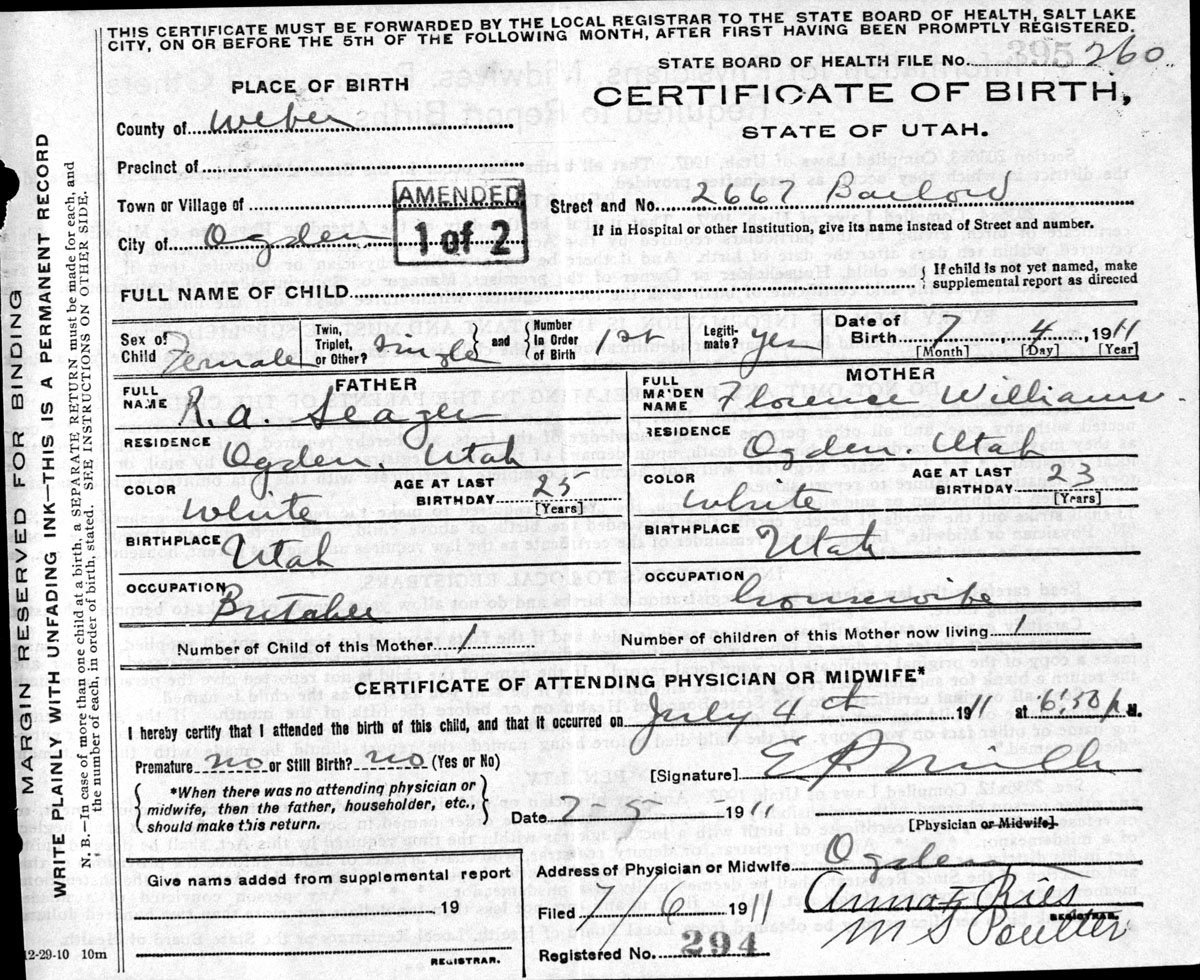 THIS CERTIFICATE MUST BE FORWARDED BY THE LOCAL REGISTRAR TO THE STATE BOARD OF HEALTH, SALT LAKE
CITY, ON OR BEFORE THE 5TH OF THE FOLLOWING MONTH, AFTER FIRST HAVING BEEN PROMPTLY REGISTERED.
STATE BOARD OF HEALTH FILE No. 395 260
PLACE OF BIRTH
CERTIFICATE OF BIRTH,
STATE OF UTAH.
County of Weber
Precinct of
Town or Village of
AMENDED
1 of 2
Street and No. 2667 Barlow
City of Ogden
If in Hospital or other Institution, give its name instead of Street and number.
FULL NAME OF CHILD
{ If child is not yet named, make
supplemental report as directed
Sex of Child Female
Twin, Triplet, or Other? Single
and { Number In Order of Birth 1st
Legiti- mate? Yes
Date of Birth 7 4, 1911
[Month] [Day] [Year]
FATHER
FULL NAME R. A. Seager
RESIDENCE Ogden, Utah
COLOR White
AGE AT LAST BIRTHDAY 25 [Years]
BIRTHPLACE Utah
OCCUPATION Butcher
MOTHER
FULL MAIDEN NAME Florence Williams.
RESIDENCE Ogden, Utah
COLOR White
AGE AT LAST BIRTHDAY 23 [Years]
BIRTHPLACE Utah
OCCUPATION housewife
Number of Child of this Mother 1
Number of children of this Mother now living 1
CERTIFICATE OF ATTENDING PHYSICIAN OR MIDWIFE*
I hereby certify that I attended the birth of this child, and that it occurred on July 4th 1911 at 6,30 p M.
Premature no or Still Birth? no (Yes or No)
[Signature] E R
*When there was no attending physician or
midwife, then the father, householder, etc.,
should make this return.
Date 7 - 5 - 1911
[Physician or Midwife]
Give name added from supplemental report
19
REGISTRAR.
Address of Physician or Midwife Ogden
Filed 7/6 1911
Anna F Ries
REGISTRAR.
M S Poulter
Registered No. 294
12-29-10 10m
MARGIN RESERVED FOR BINDING
WRITE PLAINLY WITH UNFADING INK—THIS IS A PERMANENT RECORD
N. B.—In case of more than one child at a birth, a SEPARATE RETURN must be made for each, and
the number of each, in order of birth, stated. SEE INSTRUCTIONS ON OTHER SIDE.